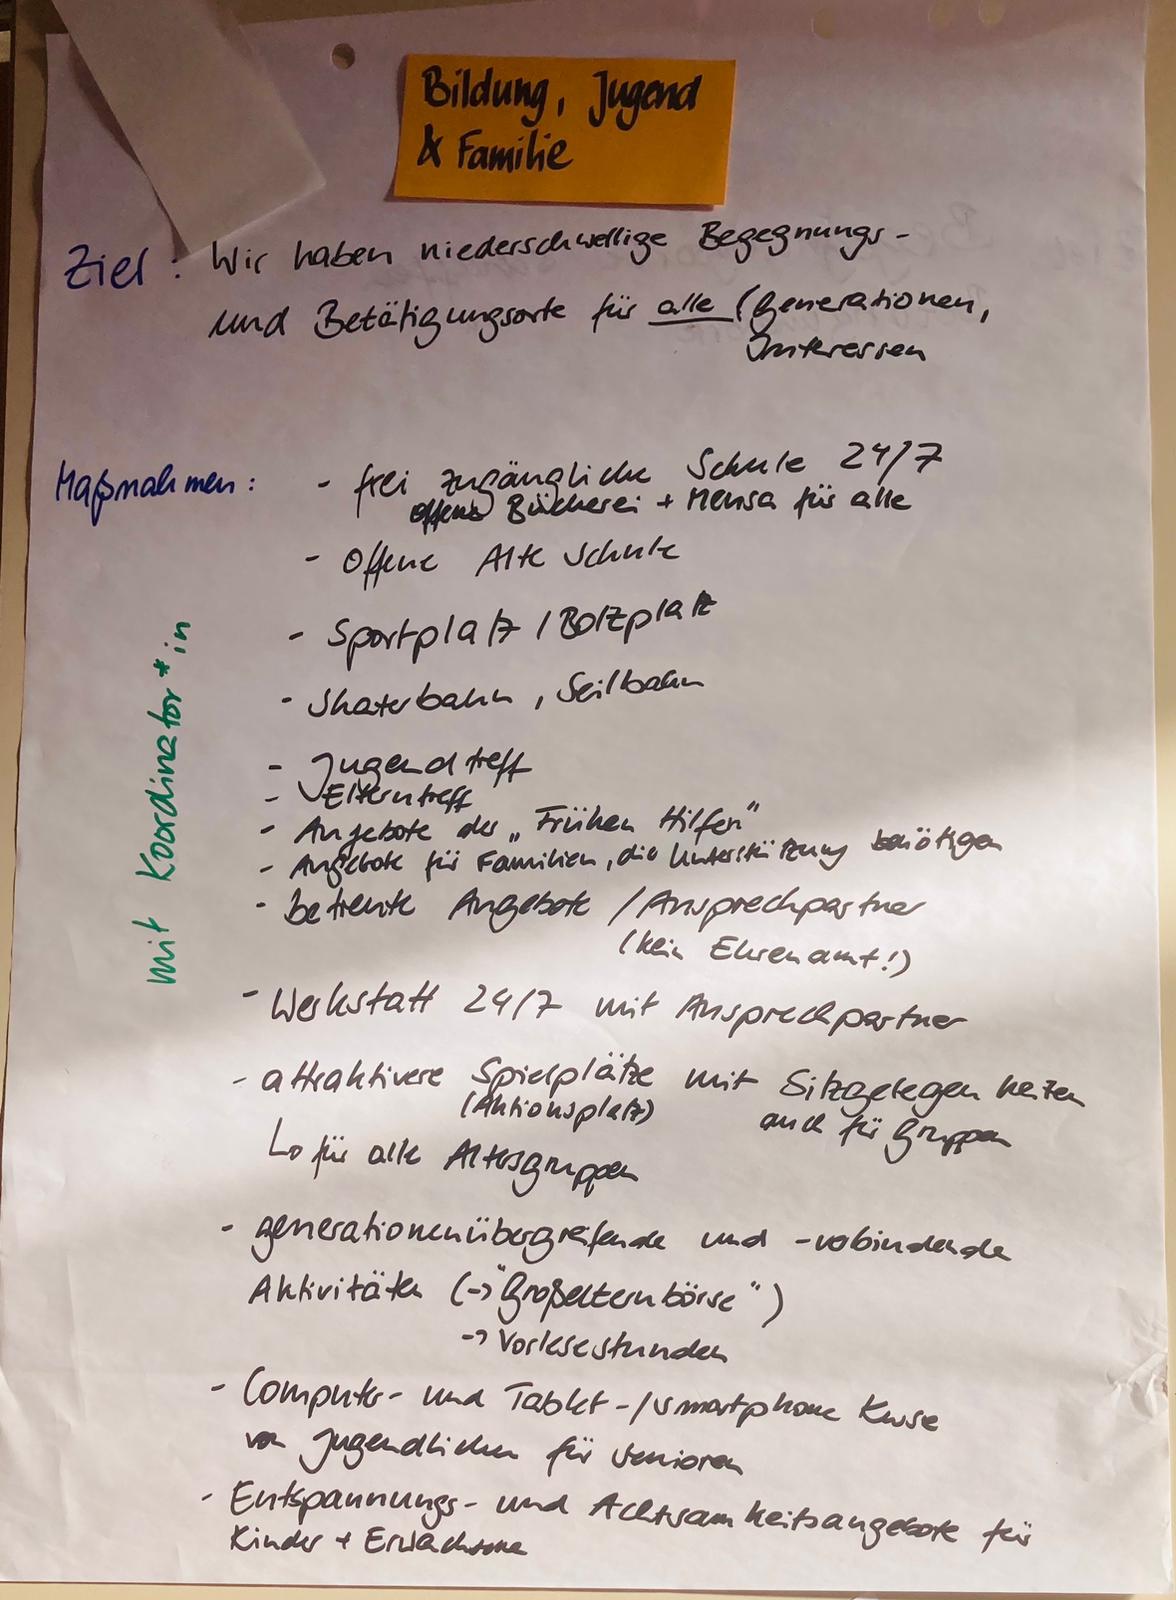 Bildung, Jugend
& Familie
Ziel: Wir haben niederschwellige Begegnungs-
und Betätigungsorte für alle (Generationen,
Interessen
Maßnahmen: - frei zugängliche Schule 24/7
offene Bücherei + Mensa für alle
- Offene Alte Schule
- Sportplatz / Bolzplatz
- Skaterbahn, Seilbahn
- Jugendtreff
- Elterntreff
- Angebote der „Frühen Hilfen"
- Angebote für Familien, die Unterstützung benötigen
- betreute Angebote / Ansprechpartner
(kein Ehrenamt!)
mit Koordinator*in
- Werkstatt 24/7 mit Ansprechpartner
- attraktivere Spielplätze mit Sitzgelegenheiten
(Aktionsplatz) auch für Gruppen
↳ für alle Altersgruppen
- generationenübergreifende und -verbindende
Aktivitäten (→ "Großelternbörse")
→ Vorlesestunden
- Computer- und Tablet-/Smartphone Kurse
von Jugendlichen für Senioren
- Entspannungs- und Achtsamkeitsangebote für
Kinder + Erwachsene